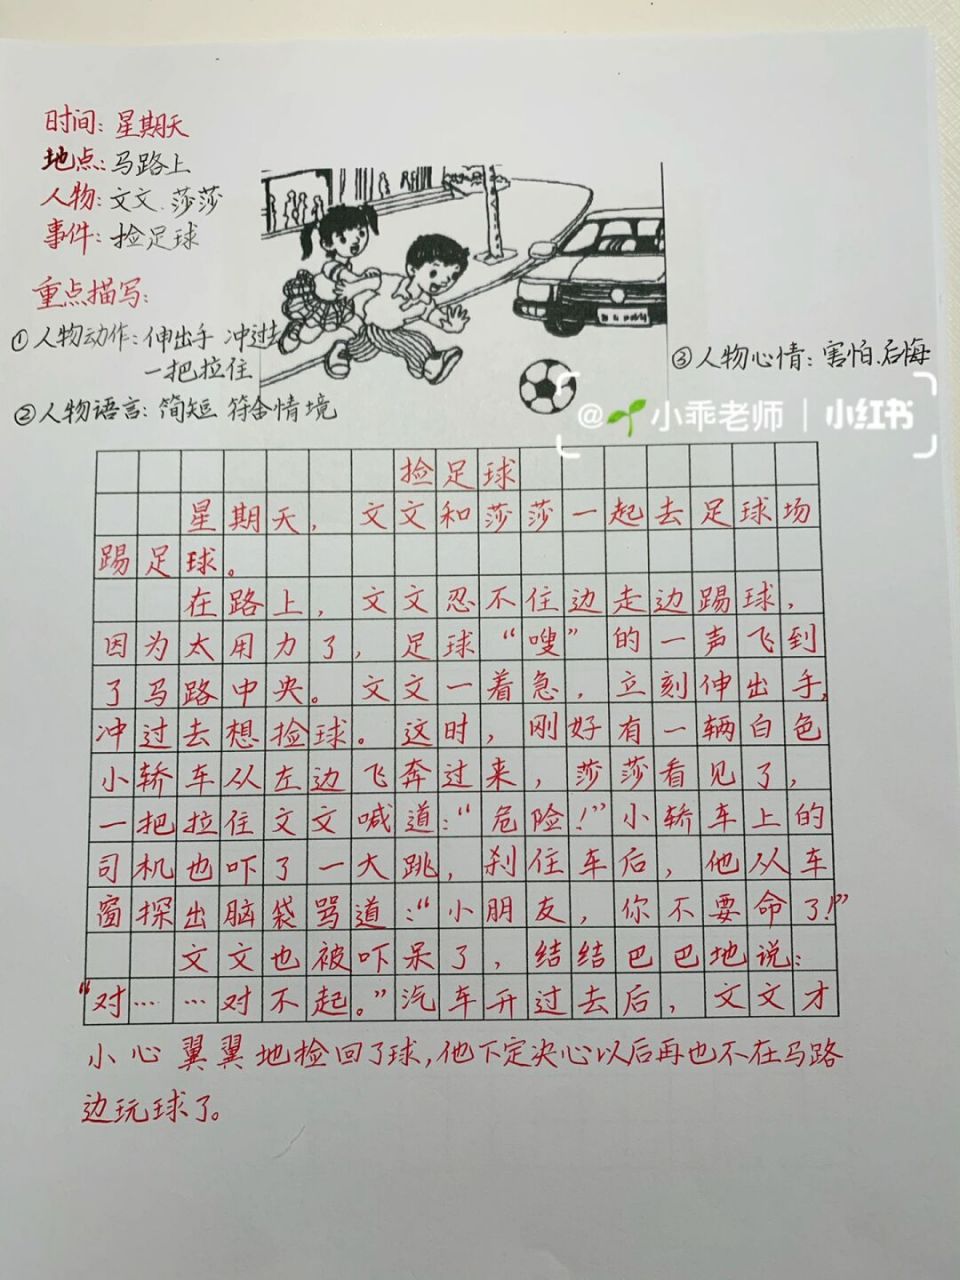 时间：星期天
地点：马路上
人物：文文.莎莎
事件：捡足球
重点描写：
①人物动作：伸出手 冲过去
一把拉住
②人物语言：简短 符合情境
③人物心情：害怕.后悔
@🌱小乖老师｜小红书
捡足球
星期天，文文和莎莎一起去足球场
踢足球。
在路上，文文忍不住边走边踢球，
因为太用力了，足球“嗖”的一声飞到
了马路中央。文文一着急，立刻伸出手，
冲过去想捡球。这时，刚好有一辆白色
小轿车从左边飞奔过来，莎莎看见了，
一把拉住文文喊道：“危险！”小轿车上的
司机也吓了一大跳，刹住车后，他从车
窗探出脑袋骂道：“小朋友，你不要命了！”
文文也被吓呆了，结结巴巴地说：
“对……对不起。”汽车开过去后，文文才
小心翼翼地捡回了球，他下定决心以后再也不在马路
边玩球了。